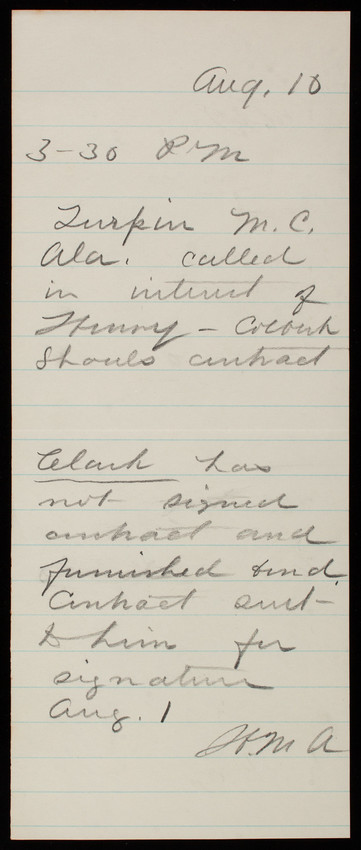 Aug. 10
3-30 P.M
Turpin M.C.
Ala. called
in interest of
Henry - Colbert
Shoals contract
Clark has
not signed
contract and
furnished bond.
Contract sent
to him for
signature
Aug. 1
H.M A